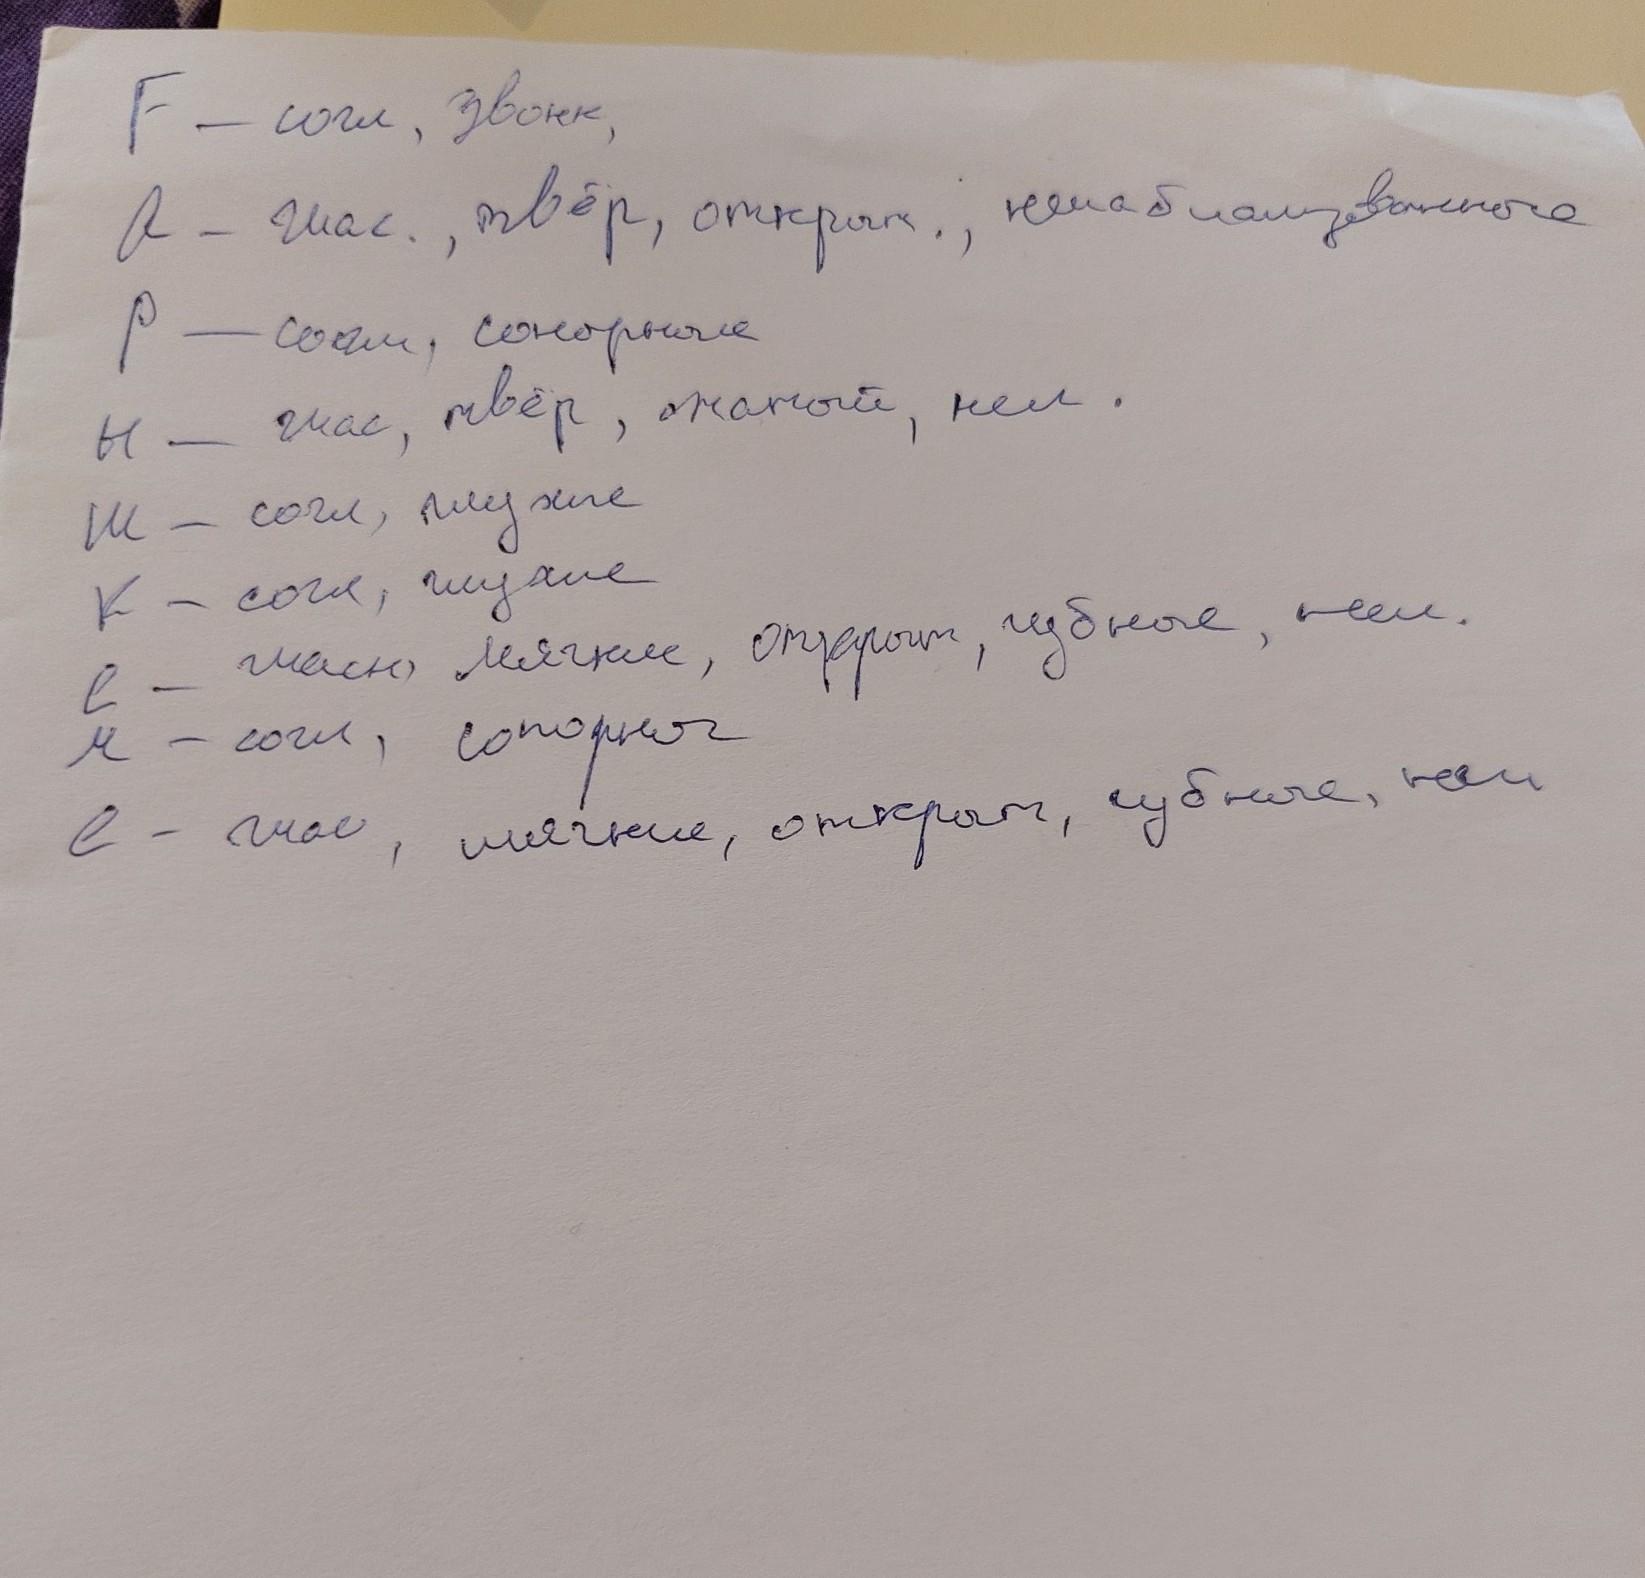 Ғ — согл, звонк,
А — глас., твёр, открыт., нелабиализованные
Р — согл, сонорные
Ы — глас, твёр, сжатый, нел.
Ш — согл, глухие
К — согл, глухие
Е — гласн, мягкие, открыт, губные, нел.
М — согл, сонорног
Е — глас, мягкие, открыт, губные, нел